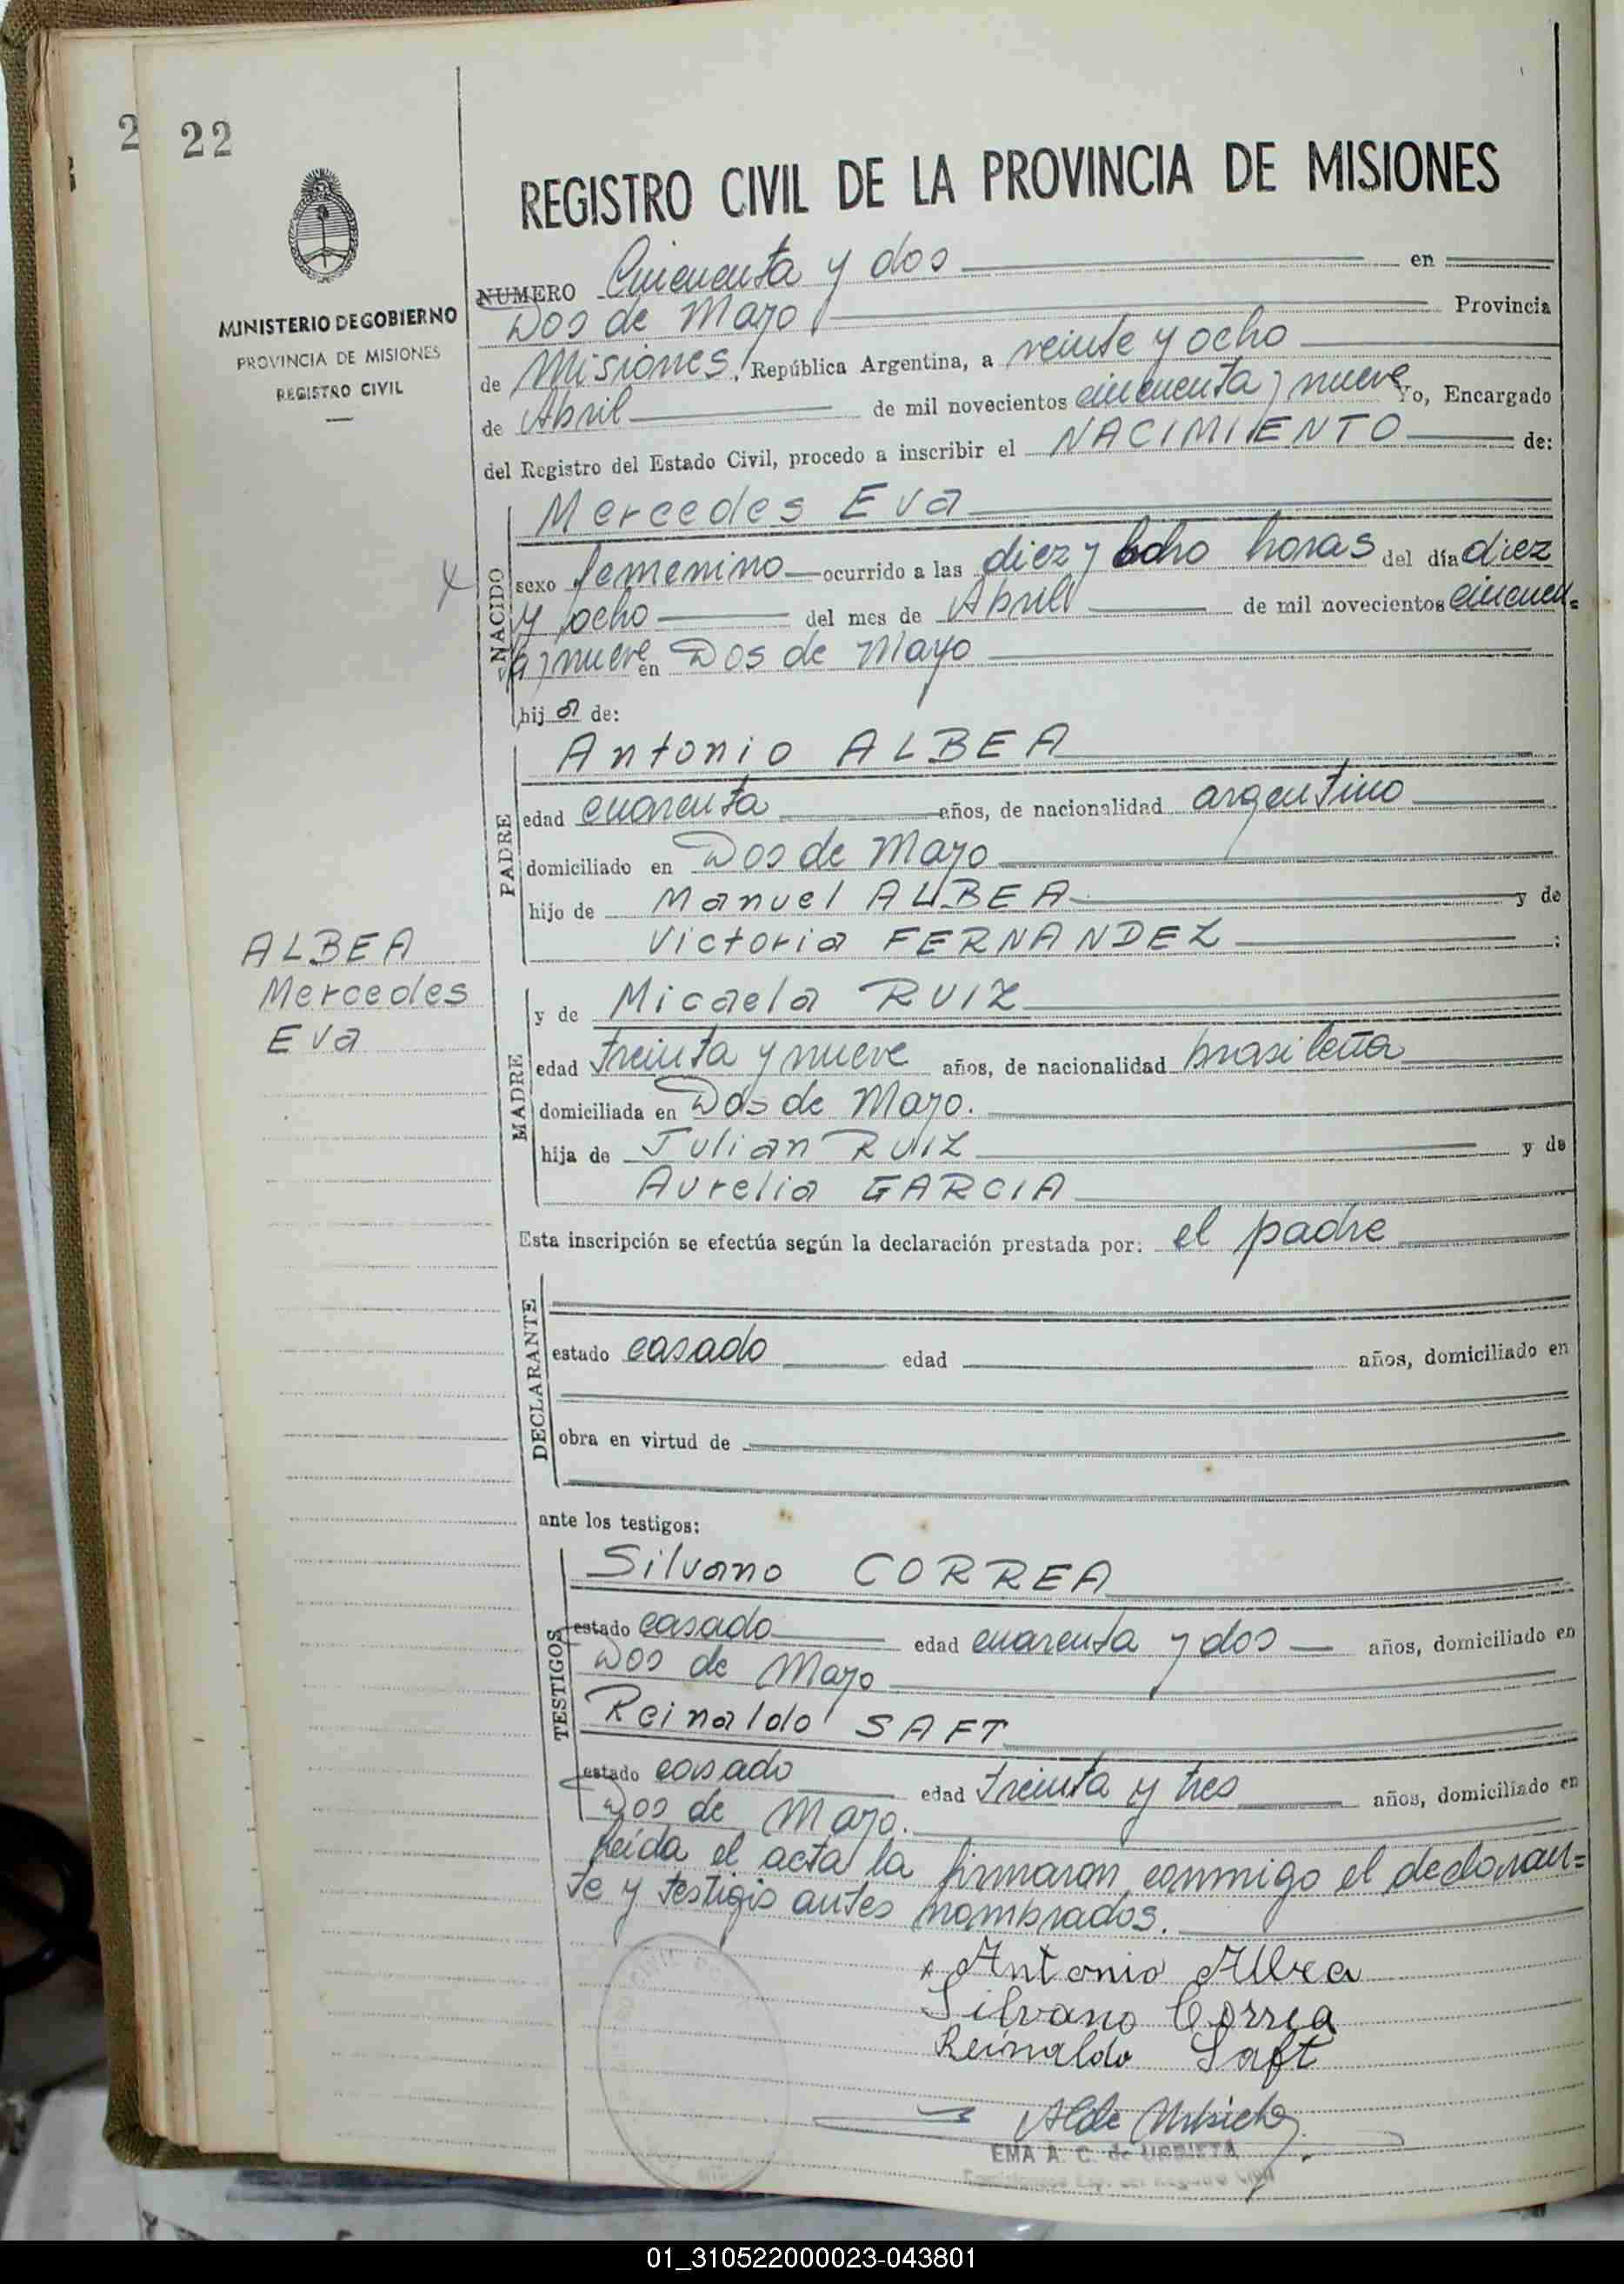 2 22
REGISTRO CIVIL DE LA PROVINCIA DE MISIONES
MINISTERIO DE GOBIERNO
PROVINCIA DE MISIONES
REGISTRO CIVIL
NUMERO Cincuenta y dos en
Dos de Mayo Provincia
de Misiones, República Argentina, a veinte y ocho
de Abril de mil novecientos cincuenta y nueve Yo, Encargado
del Registro del Estado Civil, procedo a inscribir el NACIMIENTO de:
NACIDO
Mercedes Eva
sexo femenino ocurrido a las diez y ocho horas del día diez
y ocho del mes de Abril de mil novecientos cincuen-
ta y nueve en Dos de Mayo
hij a de:
PADRE
Antonio ALBEA
edad cuarenta años, de nacionalidad argentino
domiciliado en Dos de Mayo
hijo de Manuel ALBEA y de
Victoria FERNANDEZ ;
ALBEA
Mercedes
Eva
MADRE
y de Micaela RUIZ
edad treinta y nueve años, de nacionalidad brasileña
domiciliada en Dos de Mayo.
hija de Julian RUIZ y de
Aurelia GARCIA
Esta inscripción se efectúa según la declaración prestada por: el padre
DECLARANTE
estado casado edad años, domiciliado en
obra en virtud de
ante los testigos:
TESTIGOS
Silvano CORREA
estado casado edad cuarenta y dos años, domiciliado en
Dos de Mayo
Reinaldo SAFT
estado casado edad treinta y tres años, domiciliado en
Dos de Mayo.
Leída el acta la firmaron conmigo el declaran=
te y testigis antes nombrados.
Antonio Albea
Silvano Correa
Reinaldo Saft
EMA A. C. de URRIETA
01_310522000023-043801